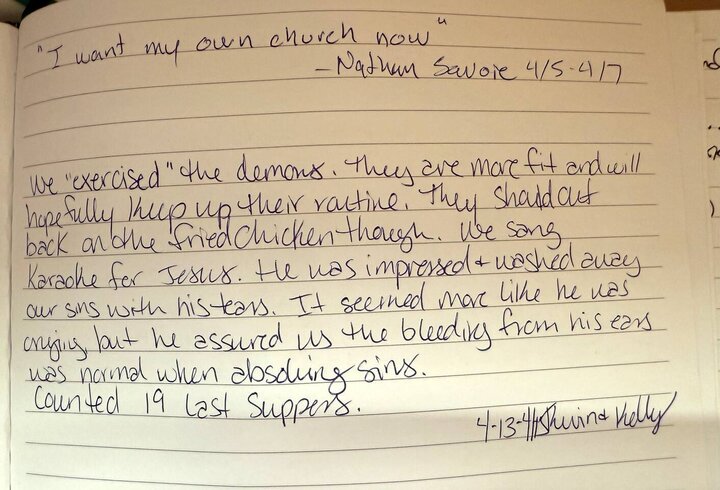 "I want my own church now"
– Nathan Savoie 4/5-4/7
We "exercised" the demons. They are more fit and will
hopefully keep up their routine. They should cut
back on the fried chicken though. We sang
Karaoke for Jesus. He was impressed + washed away
our sins with his tears. It seemed more like he was
crying but he assured us the bleeding from his ears
was normal when absolving sins.
Counted 19 Last Suppers.
4-13-4/ Kelly